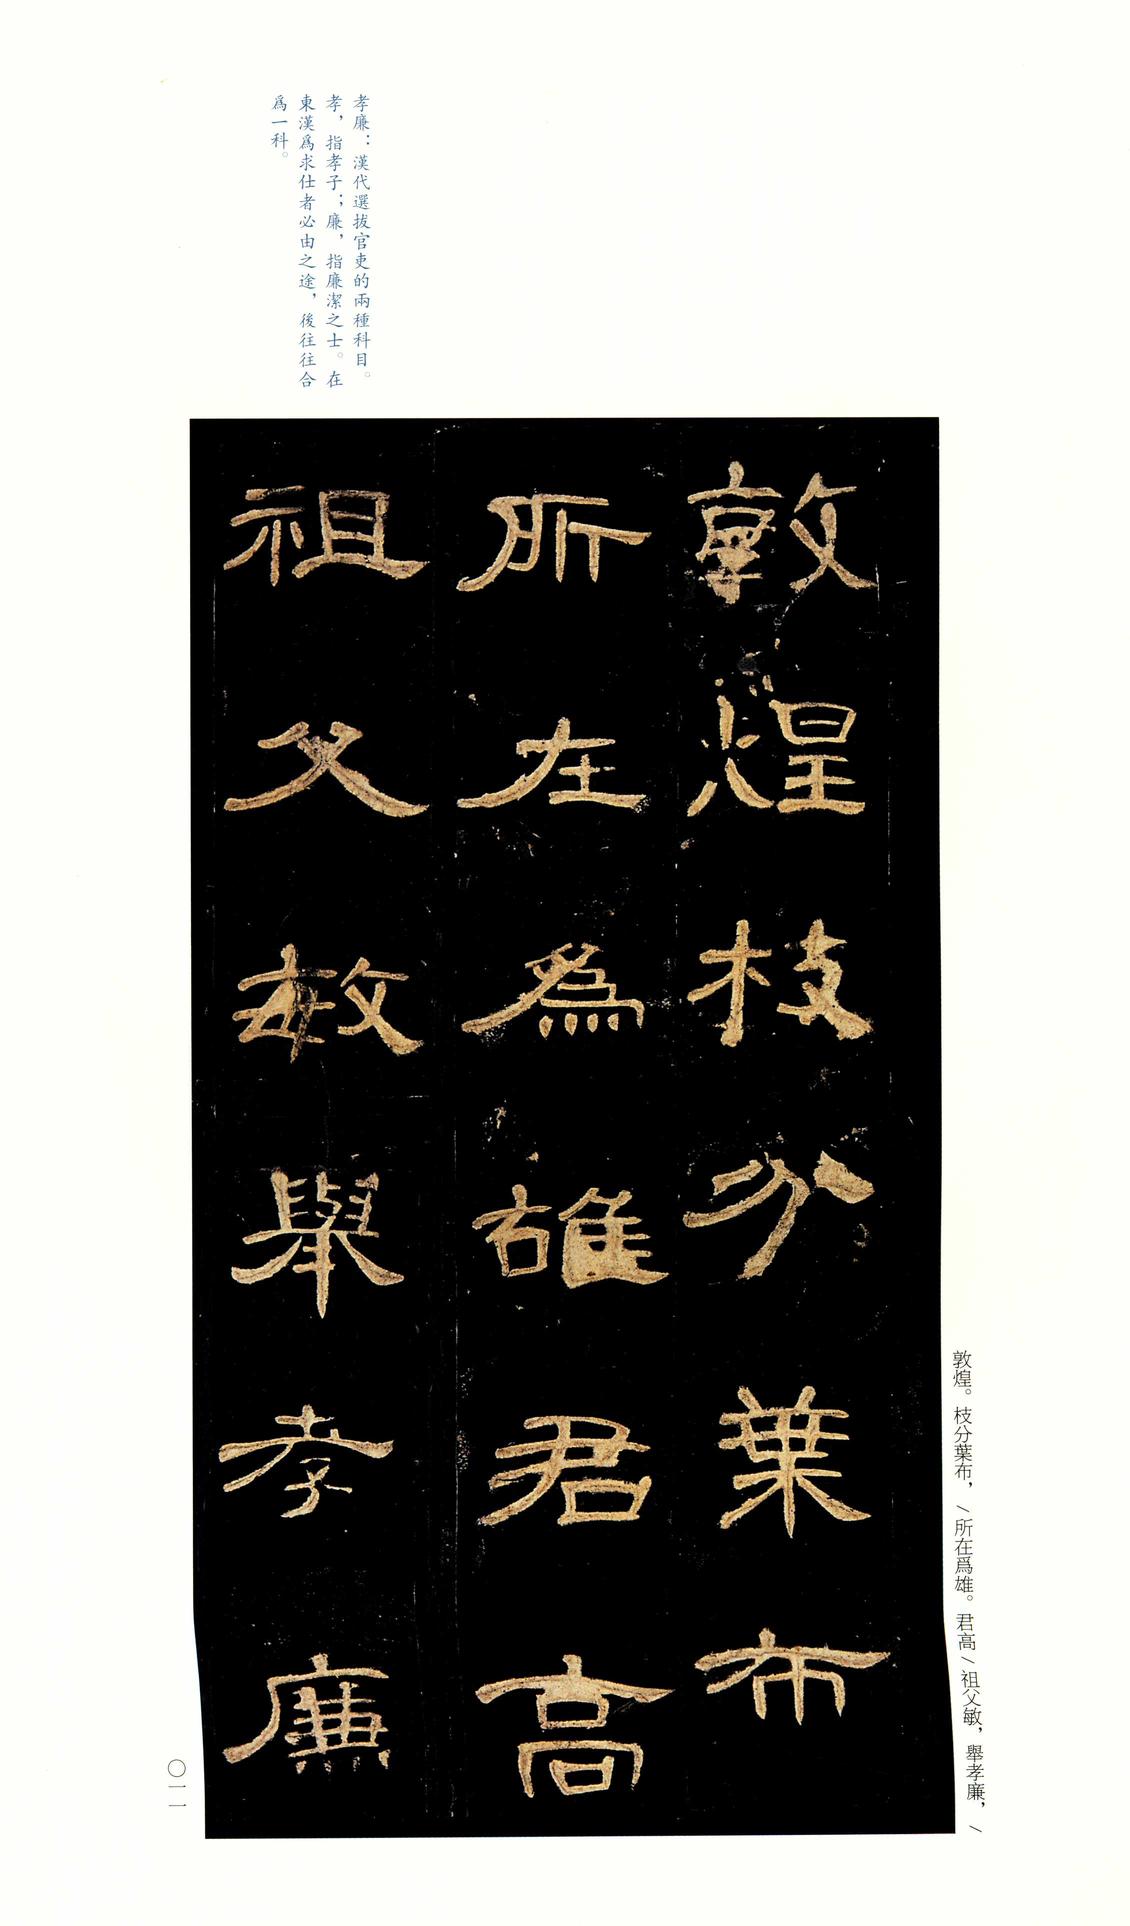 孝廉：漢代選拔官吏的兩種科目。
孝，指孝子；廉，指廉潔之士。在
東漢爲求仕者必由之途，後往往合
爲一科。
敦煌枝分葉布
所在爲雄君高
祖父敏舉孝廉
敦煌。枝分葉布，/所在爲雄。君高/祖父敏，舉孝廉，/
〇一一